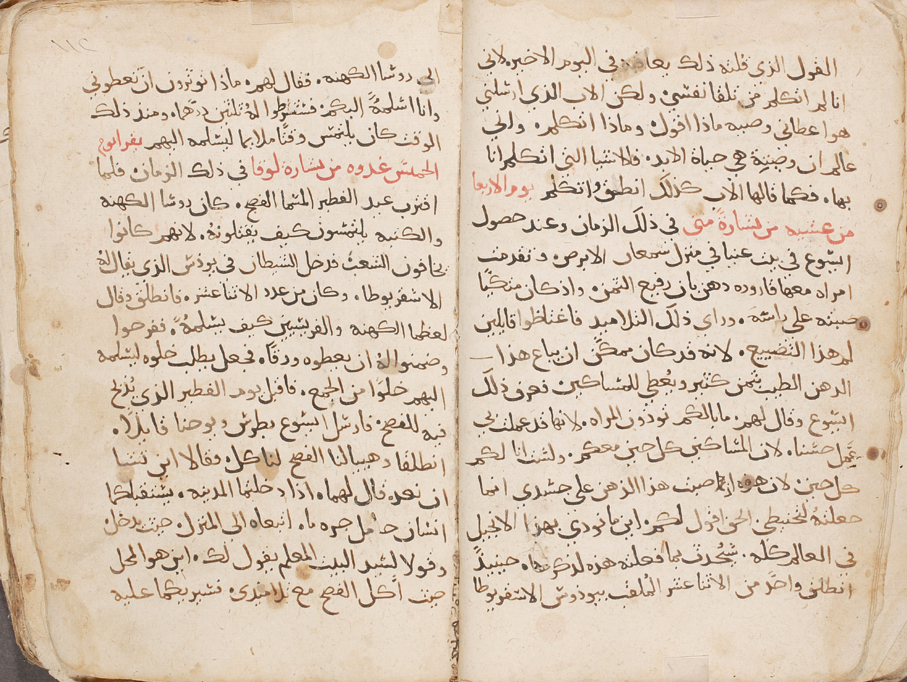 القول الذي قلته ذلك يعاقبه في اليوم الاخير. لاني
انا لم اتكلم من تلقا نفسي ولكن الاب الذي ارسلني
هوا عطاني وصيه ماذا اقول وماذا اتكلم. واني
عالم ان وصيته هي حياة الابد. فالاشيا التي اتكلم انا
بها. فكما قالها الاب كذلك انطق واتكلم يوم الاربعا
من عشيه من بشارة متى في ذلك الزمان وعند حصول
ايسوع في بيت عنيا في منزل سمعان الابرص. وتقدمت
امراه معها قاروره دهن بان رفيع الثمن. واذ كان متكيا
صبته على راسه. وراى ذلك التلاميد فاغتاظوا قايلين
لم هذا التضييع. لانه قد كان ممكن ان يباع هذا
الدهن الطيب بثمن كثير ويعطي للمساكين فعرف ذلك
ايسوع وقال لهم. ما بالكم توذون المراه. لانها قد عملت بي
عمل حسنا. لان المساكين كل حين معكم. ولست انا لكم
كل حين لان هذه اذ صبت هذا الدهن على جسدي انما
جعلته لتحنيطي الحق اقول لكم. اين ما نودي بهذا الانجيل
في العالم كله. يتحدث بما فعلته هذه لذكرها. حينيذ
انطلق واحد من الاثنا عشر الملقب بيودوس الاسقريوطا
الى روسا الكهنه. فقال لهم. ماذا توثرون ان تعطوني
وانا اسلمه اليكم فشرطوا له ثلثين درهما. ومنذ ذلك
الوقت كان يلتمس وقتا ملايما ليسلمه اليهم يقرا يوم
الخميس غدوه من بشارة لوقا في ذلك الزمان. فلما
اقترب عيد الفطير المسما الفصح. كان روسا الكهنه
والكتبه يلتمسون كيف يقتلونه. لانهم كانوا
يخافون الشعب فدخل الشيطان في يودس الذي يقال له
الاسقريوطا. وكان من عدد الاثنا عشر. فانطلق وقال
لعظما الكهنه والفريسيين كيف يسلمه. ففرحوا
وضمنوا له ان يعطوه ورقا. فجعل يطلب خلوه ليسلمه
اليهم خلوا من الجمع. فاقبل يوم الفطير الذي يذبح
فيه للفصح. فارسل ايسوع بطرس ويوحنا قايلا.
انطلقا وهييا لنا الفصح لناكل. فقالا اين تشا
ان نعد. قال لهما. اذا دخلتما المدينه. يستقبلكما
انسان حامل جره ما. اتبعاه الى المنزل. حيث يدخل
وقولا لسيد البيت المعلم يقول لك. اين هو المحل
حيث آكل الفصح مع تلاميدي. فسيريكما عليه